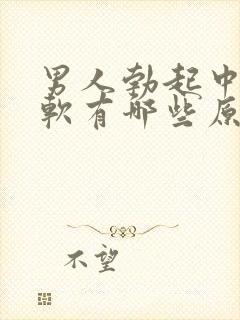 男人勃起中
軟有哪些原
不望